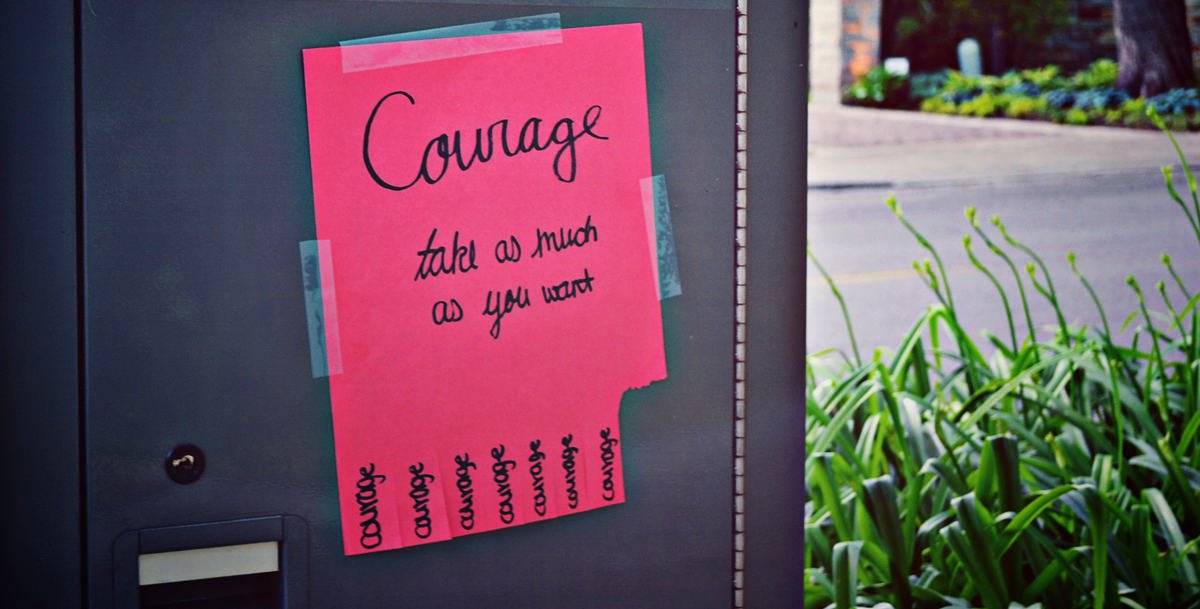 Courage
take as much
as you want
courage
courage
courage
courage
courage
courage
courage